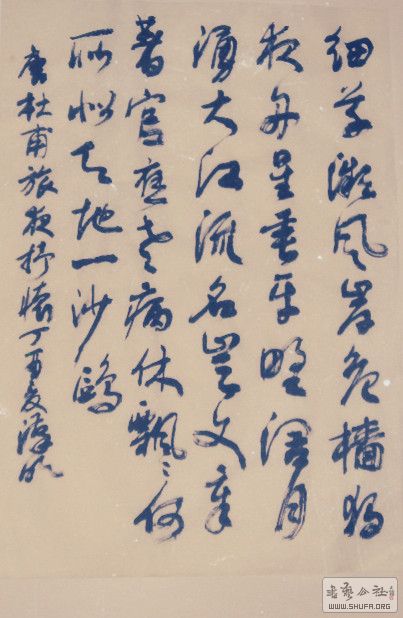 细草微风岸危檣独
夜舟星垂平野阔月
涌大江流名岂文章
著官应老病休飘〻何
所似天地一沙鸥
唐杜甫旅夜抒懷丁酉夏
书艺公社
WWW.SHUFA.ORG